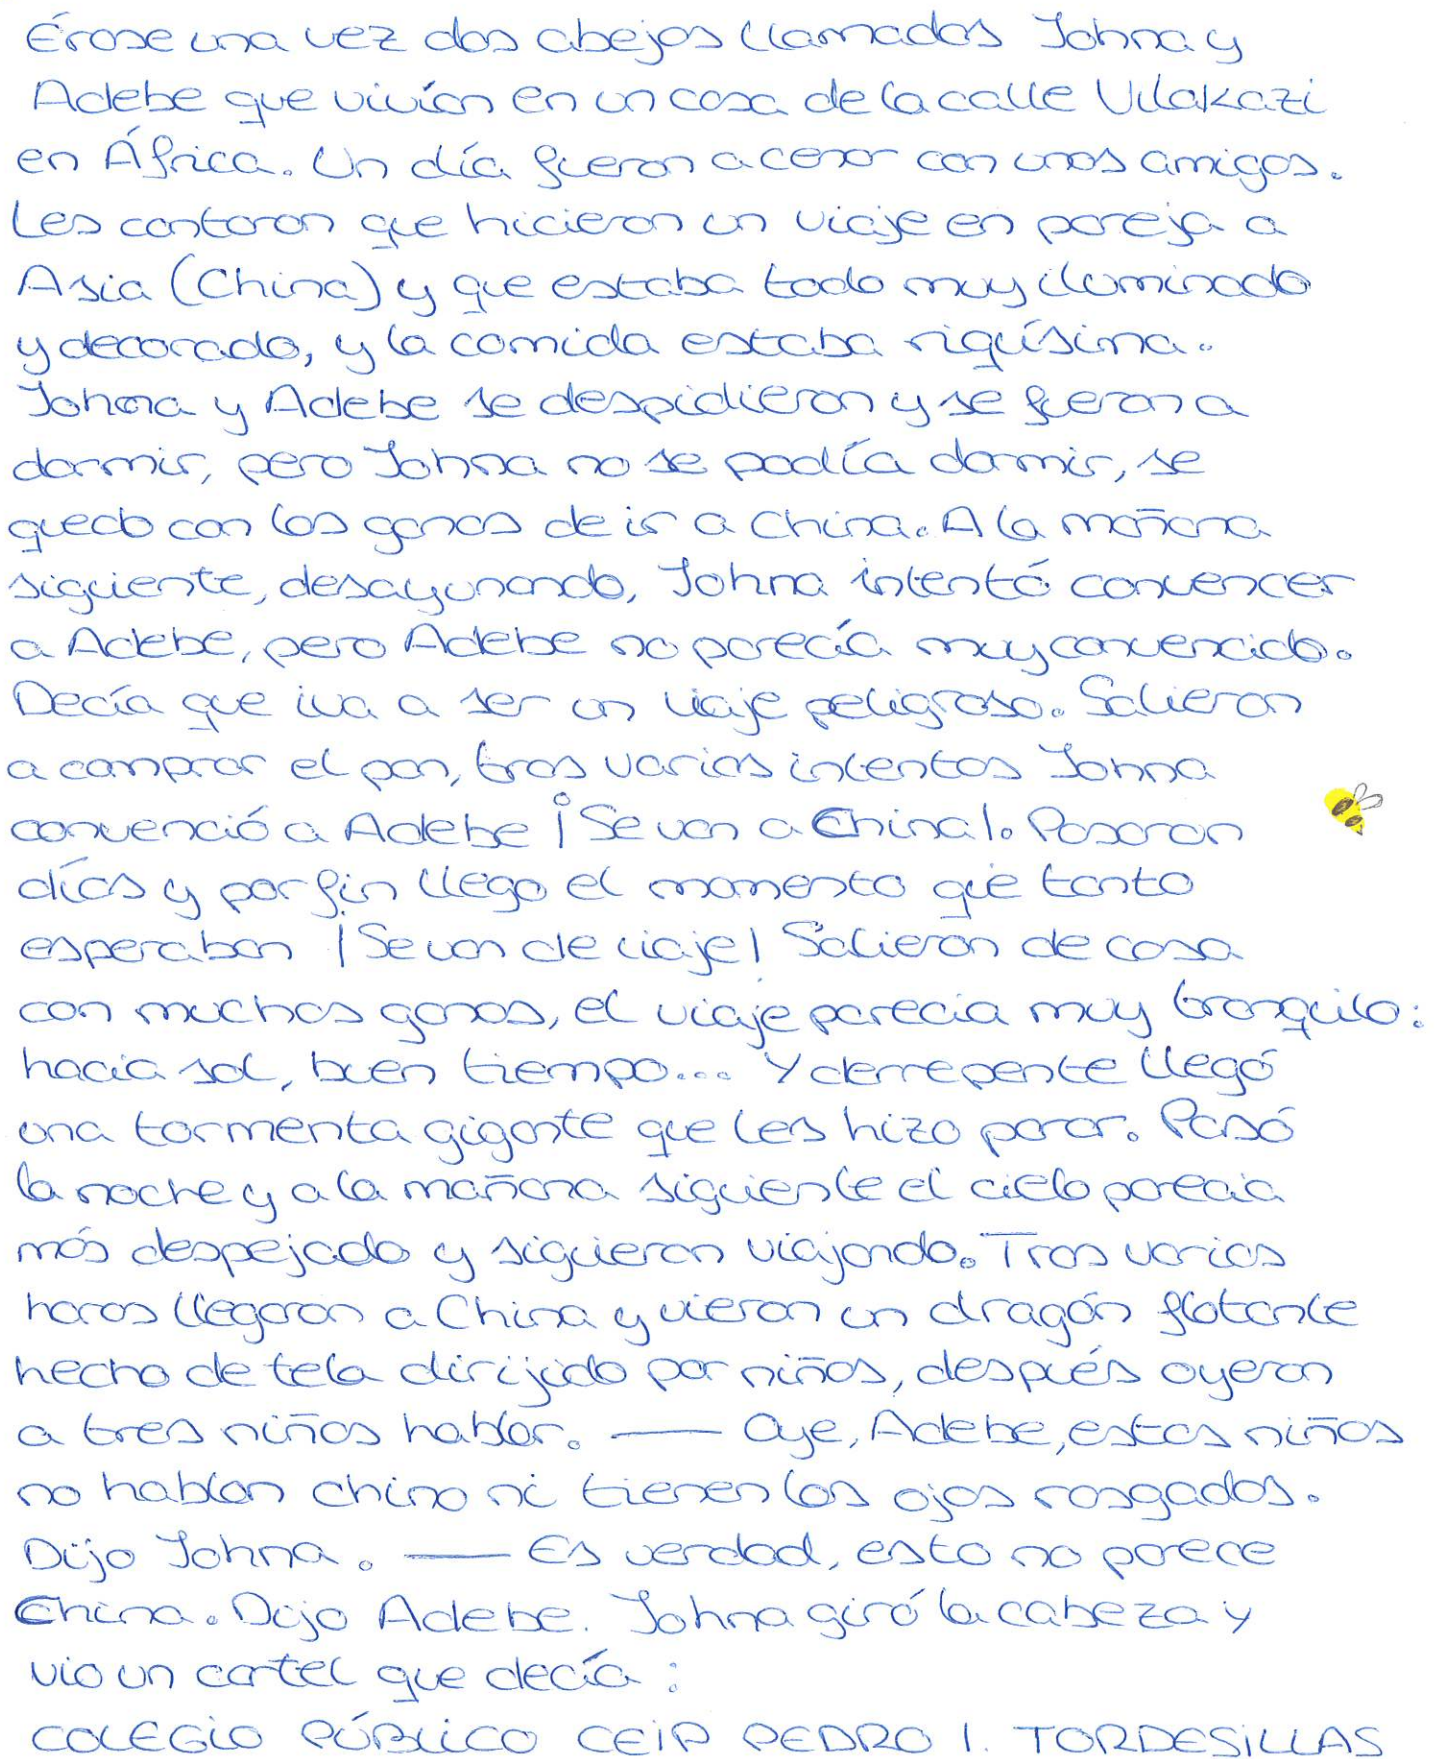 Érase una vez dos abejas llamadas Johna y
Adebe que vivían en un casa de la calle Vilakazi
en África. Un día fueron a cenar con unos amigos.
Les contaron que hicieron un viaje en pareja a
Asia (China) y que estaba todo muy iluminado
y decorado, y la comida estaba riquísima.
Johna y Adebe se despidieron y se fueron a
dormir, pero Johna no se podía dormir, se
quedo con las ganas de ir a China. A la mañana
siguiente, desayunando, Johna intentó convencer
a Adebe, pero Adebe no parecía muy convencido.
Decía que iva a ser un viaje peligroso. Salieron
a comprar el pan, tras varios intentos Johna
convenció a Adebe ¡Se van a China!. Pasaron
días y por fin llego el momento que tanto
esperaban ¡Se van de viaje! Salieron de casa
con muchas ganas, el viaje parecia muy tranquilo:
hacia sol, buen tiempo... Y derrepente llegó
una tormenta gigante que les hizo parar. Pasó
la noche y a la mañana siguiente el cielo parecia
más despejado y siguieron viajando. Tras varias
horas llegaron a China y vieron un dragón flotante
hecho de tela dirijido por niños, después oyeron
a tres niños hablar. — Oye, Adebe, estos niños
no hablan chino ni tienen los ojos rasgados.
Dijo Johna. — Es verdad, esto no parece
China. Dijo Adebe. Johna giró la cabeza y
vio un cartel que decía:
COLEGIO PÚBLICO CEIP PEDRO I. TORDESILLAS